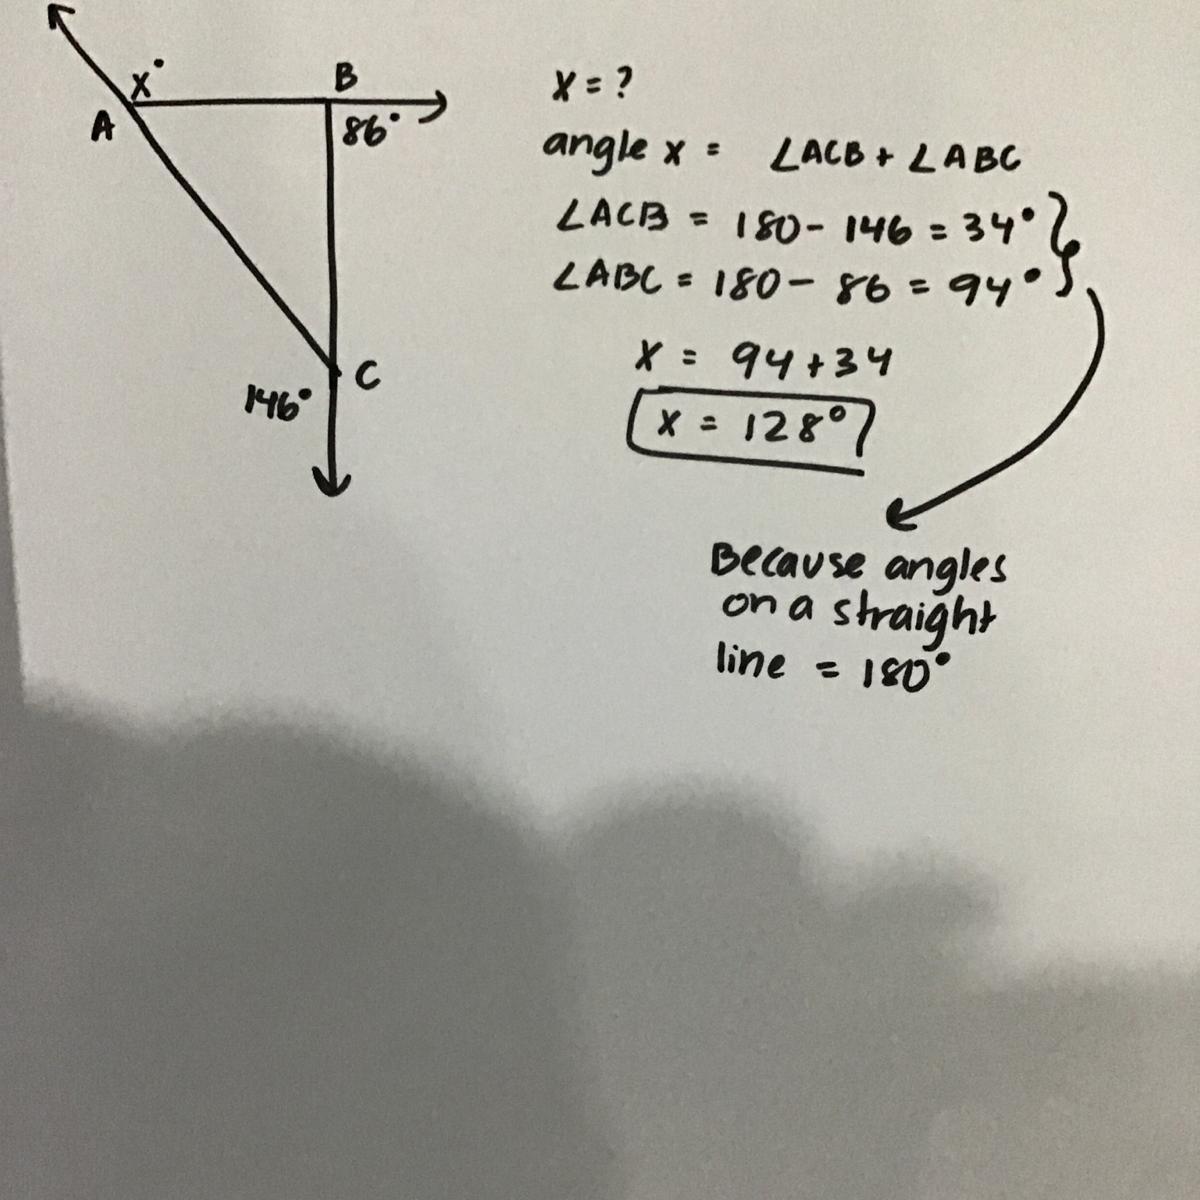 x°
B
A
86°
C
146°
x = ?
angle x = ∠ACB + ∠ABC
∠ACB = 180 - 146 = 34°
∠ABC = 180 - 86 = 94°
x = 94 + 34
x = 128°
Because angles
on a straight
line = 180°